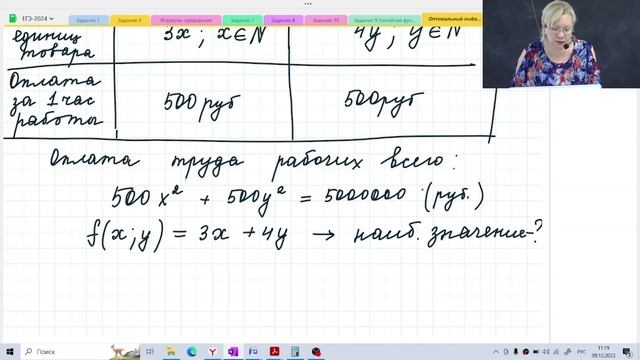 ЕГЭ-2024
Задание 1
Задание 4
Формулы приведения
Задание 7
Задание 8
Задание 10
Задание 9 Линейные фун...
Оптимальный выбо...
единиц товара
3x ; x∈N
4y ; y∈N
Оплата за 1 час работы
500 руб
500 руб
Оплата труда рабочих всего:
500x² + 500y² = 5000000 (руб.)
f(x;y) = 3x + 4y → наиб. значение-?
Поиск
РУС
11:19
09.12.2023